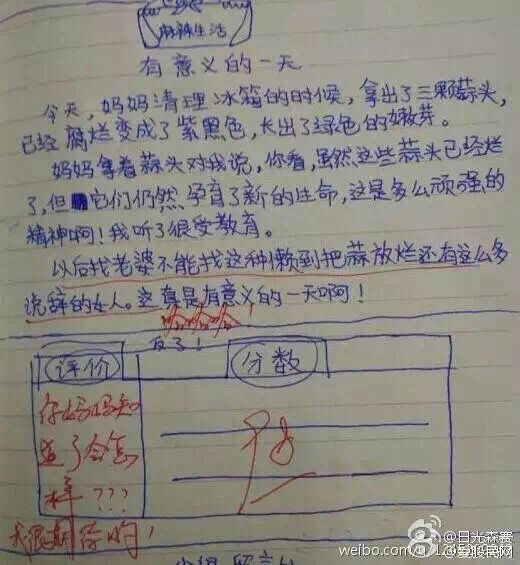 麻辣生活
有意义的一天
今天，妈妈清理冰箱的时候，拿出了三颗蒜头，
已经腐烂变成了紫黑色，长出了绿色的嫩芽。
妈妈拿着蒜头对我说，你看，虽然这些蒜头已经烂
了，但它们仍然孕育了新的生命，这是多么顽强的
精神啊！我听了很受教育。
以后找老婆不能找这种懒到把蒜放烂还有这么多
说辞的女人。这真是有意义的一天啊！
哈哈哈
反了！
评价
分数
你妈妈知
道了会怎
样？？？
我很期待哟！
@日光森赛
@爱投稿网